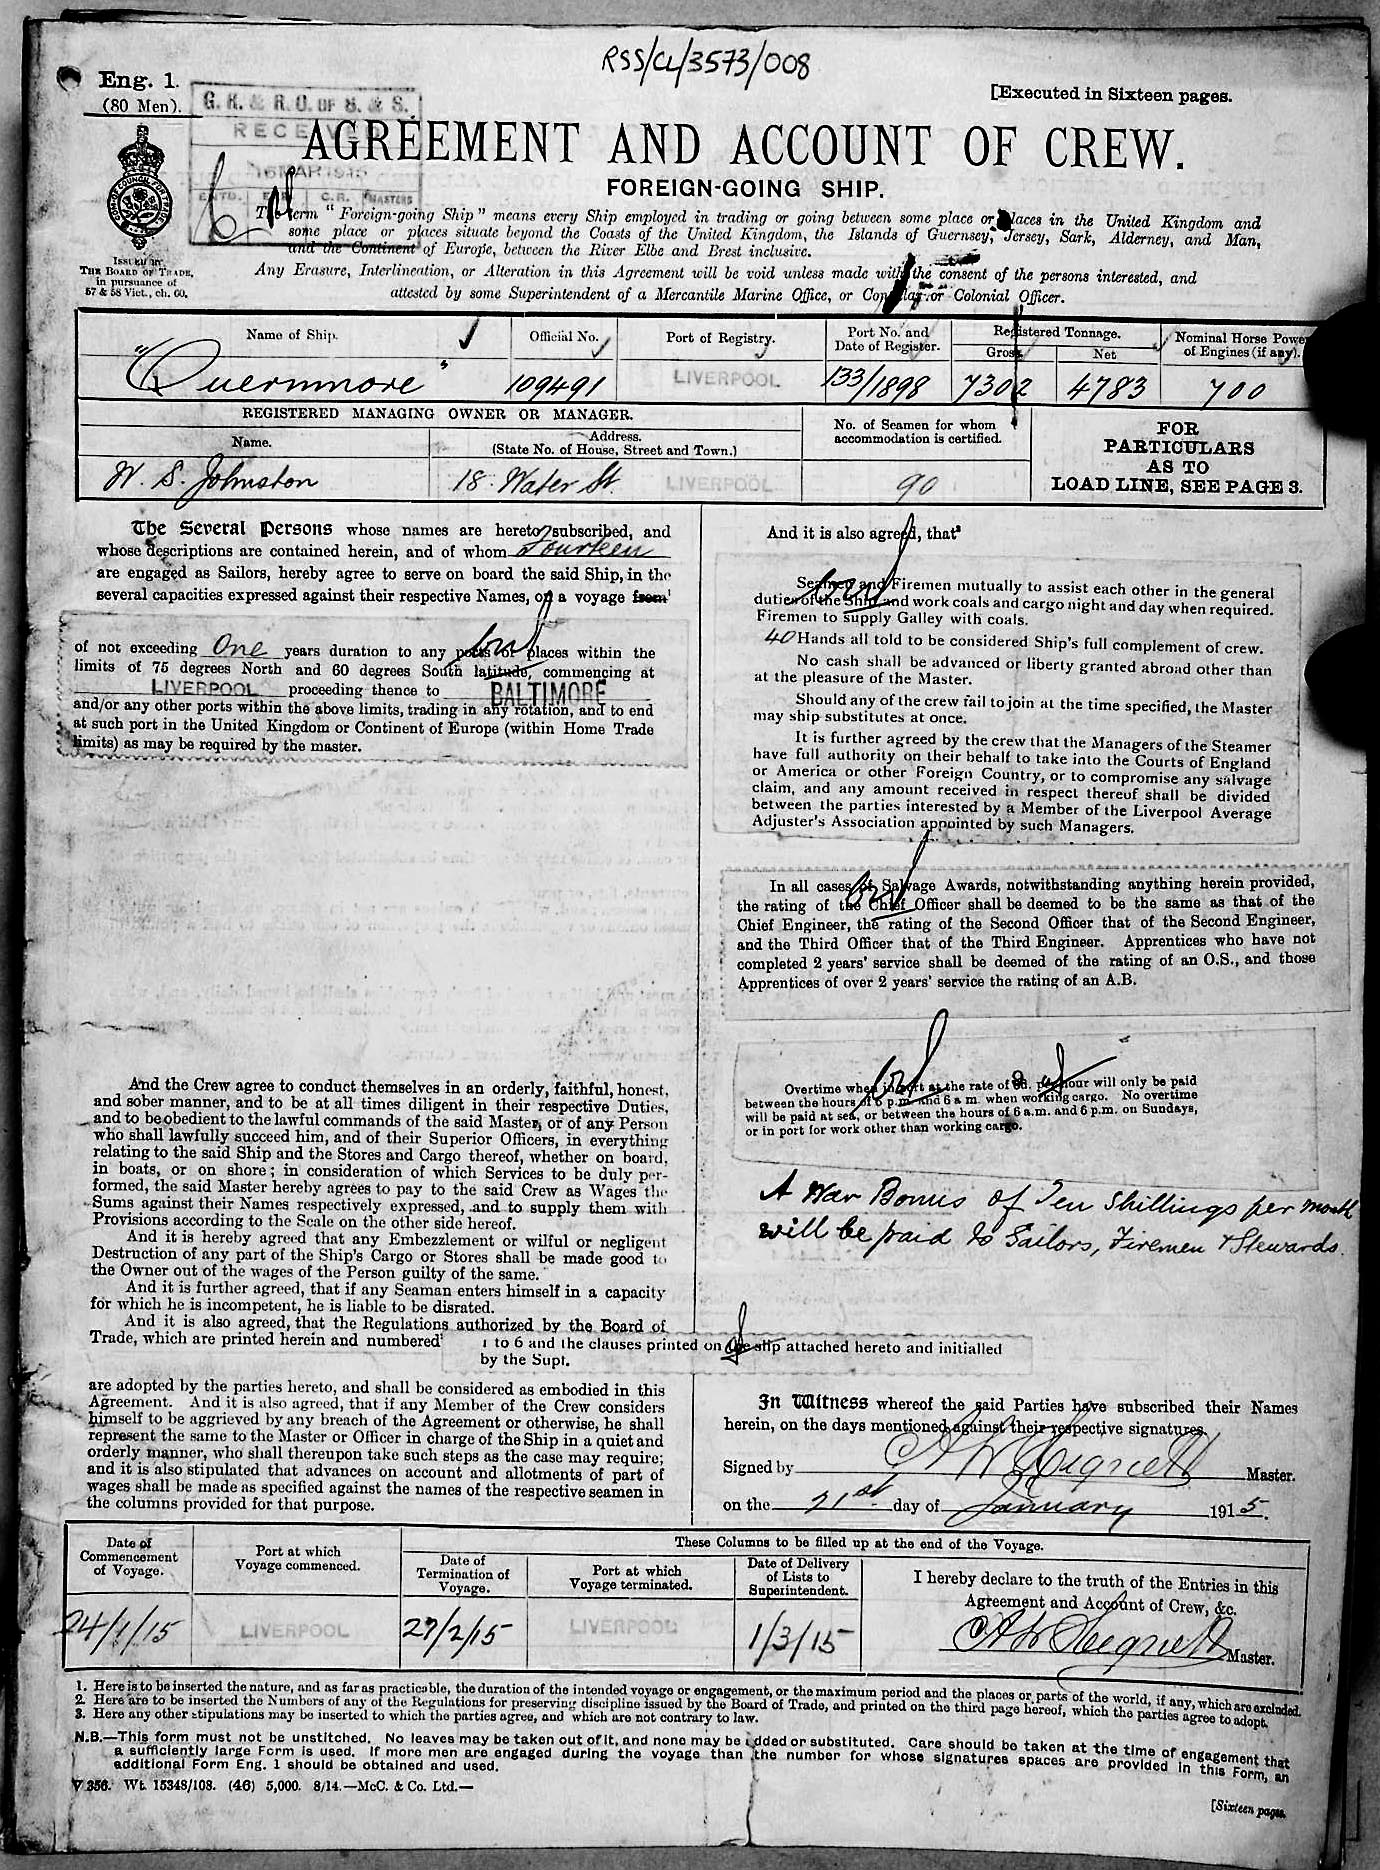 RSS/CL/3573/008
Eng. 1.
(80 Men).
[Executed in Sixteen pages.
G. R. & R. O. OF S. & S.
RECEIVED
16 MAR 1915
C.R. MASTERS
AGREEMENT AND ACCOUNT OF CREW.
FOREIGN-GOING SHIP.
ISSUED BY
THE BOARD OF TRADE,
in pursuance of
57 & 58 Vict., ch. 60.
The term "Foreign-going Ship" means every Ship employed in trading or going between some place or places in the United Kingdom and
some place or places situate beyond the Coasts of the United Kingdom, the Islands of Guernsey, Jersey, Sark, Alderney, and Man,
and the Continent of Europe, between the River Elbe and Brest inclusive.
Any Erasure, Interlineation, or Alteration in this Agreement will be void unless made with the consent of the persons interested, and
attested by some Superintendent of a Mercantile Marine Office, or Consular or Colonial Officer.
Name of Ship. Official No. Port of Registry. Port No. and Date of Register. Registered Tonnage. Gross Net Nominal Horse Power of Engines (if any).
"Quernmore" 109491 LIVERPOOL 133/1898 7302 4783 700
REGISTERED MANAGING OWNER OR MANAGER.
Name. Address. (State No. of House, Street and Town.) No. of Seamen for whom accommodation is certified.
W. S. Johnston 18 Water St. LIVERPOOL 90
FOR
PARTICULARS
AS TO
LOAD LINE, SEE PAGE 3.
The Several Persons whose names are hereto subscribed, and
whose descriptions are contained herein, and of whom Fourteen
are engaged as Sailors, hereby agree to serve on board the said Ship, in the
several capacities expressed against their respective Names, on a voyage from¹
of not exceeding One years duration to any ports or places within the
limits of 75 degrees North and 60 degrees South latitude, commencing at
LIVERPOOL proceeding thence to BALTIMORE
and/or any other ports within the above limits, trading in any rotation, and to end
at such port in the United Kingdom or Continent of Europe (within Home Trade
limits) as may be required by the master.
And the Crew agree to conduct themselves in an orderly, faithful, honest,
and sober manner, and to be at all times diligent in their respective Duties,
and to be obedient to the lawful commands of the said Master, or of any Person
who shall lawfully succeed him, and of their Superior Officers, in everything
relating to the said Ship and the Stores and Cargo thereof, whether on board,
in boats, or on shore; in consideration of which Services to be duly per-
formed, the said Master hereby agrees to pay to the said Crew as Wages the
Sums against their Names respectively expressed, and to supply them with
Provisions according to the Scale on the other side hereof.
And it is hereby agreed that any Embezzlement or wilful or negligent
Destruction of any part of the Ship's Cargo or Stores shall be made good to
the Owner out of the wages of the Person guilty of the same.
And it is further agreed, that if any Seaman enters himself in a capacity
for which he is incompetent, he is liable to be disrated.
And it is also agreed, that the Regulations authorized by the Board of
Trade, which are printed herein and numbered² 1 to 6 and the clauses printed on the slip attached hereto and initialled
by the Supt.
are adopted by the parties hereto, and shall be considered as embodied in this
Agreement. And it is also agreed, that if any Member of the Crew considers
himself to be aggrieved by any breach of the Agreement or otherwise, he shall
represent the same to the Master or Officer in charge of the Ship in a quiet and
orderly manner, who shall thereupon take such steps as the case may require;
and it is also stipulated that advances on account and allotments of part of
wages shall be made as specified against the names of the respective seamen in
the columns provided for that purpose.
And it is also agreed, that³
Seamen and Firemen mutually to assist each other in the general
duties of the Ship and work coals and cargo night and day when required.
Firemen to supply Galley with coals.
40 Hands all told to be considered Ship's full complement of crew.
No cash shall be advanced or liberty granted abroad other than
at the pleasure of the Master.
Should any of the crew fail to join at the time specified, the Master
may ship substitutes at once.
It is further agreed by the crew that the Managers of the Steamer
have full authority on their behalf to take into the Courts of England
or America or other Foreign Country, or to compromise any salvage
claim, and any amount received in respect thereof shall be divided
between the parties interested by a Member of the Liverpool Average
Adjuster's Association appointed by such Managers.
In all cases of Salvage Awards, notwithstanding anything herein provided,
the rating of the Chief Officer shall be deemed to be the same as that of the
Chief Engineer, the rating of the Second Officer that of the Second Engineer,
and the Third Officer that of the Third Engineer. Apprentices who have not
completed 2 years' service shall be deemed of the rating of an O.S., and those
Apprentices of over 2 years' service the rating of an A.B.
Overtime when in port at the rate of 8d. per hour will only be paid
between the hours of 6 p.m. and 6 a.m. when working cargo. No overtime
will be paid at sea, or between the hours of 6 a.m. and 6 p.m. on Sundays,
or in port for work other than working cargo.
A War Bonus of Ten Shillings per month
will be paid to Sailors, Firemen & Stewards.
In Witness whereof the said Parties have subscribed their Names
herein, on the days mentioned against their respective signatures.
Signed by Master.
on the 21st day of January 1915.
Date of Commencement of Voyage. Port at which Voyage commenced. These Columns to be filled up at the end of the Voyage.
Date of Termination of Voyage. Port at which Voyage terminated. Date of Delivery of Lists to Superintendent. I hereby declare to the truth of the Entries in this Agreement and Account of Crew, &c.
24/1/15 LIVERPOOL 27/2/15 LIVERPOOL 1/3/15 Master.
1. Here is to be inserted the nature, and as far as practicable, the duration of the intended voyage or engagement, or the maximum period and the places or parts of the world, if any, which are excluded.
2. Here are to be inserted the Numbers of any of the Regulations for preserving discipline issued by the Board of Trade, and printed on the third page hereof, which the parties agree to adopt.
3. Here any other stipulations may be inserted to which the parties agree, and which are not contrary to law.
N.B.—This form must not be unstitched. No leaves may be taken out of it, and none may be added or substituted. Care should be taken at the time of engagement that
a sufficiently large Form is used. If more men are engaged during the voyage than the number for whose signatures spaces are provided in this Form, an
additional Form Eng. 1 should be obtained and used.
V 356. Wt. 15348/108. (46) 5,000. 8/14.—McC. & Co. Ltd.—
[Sixteen pages.